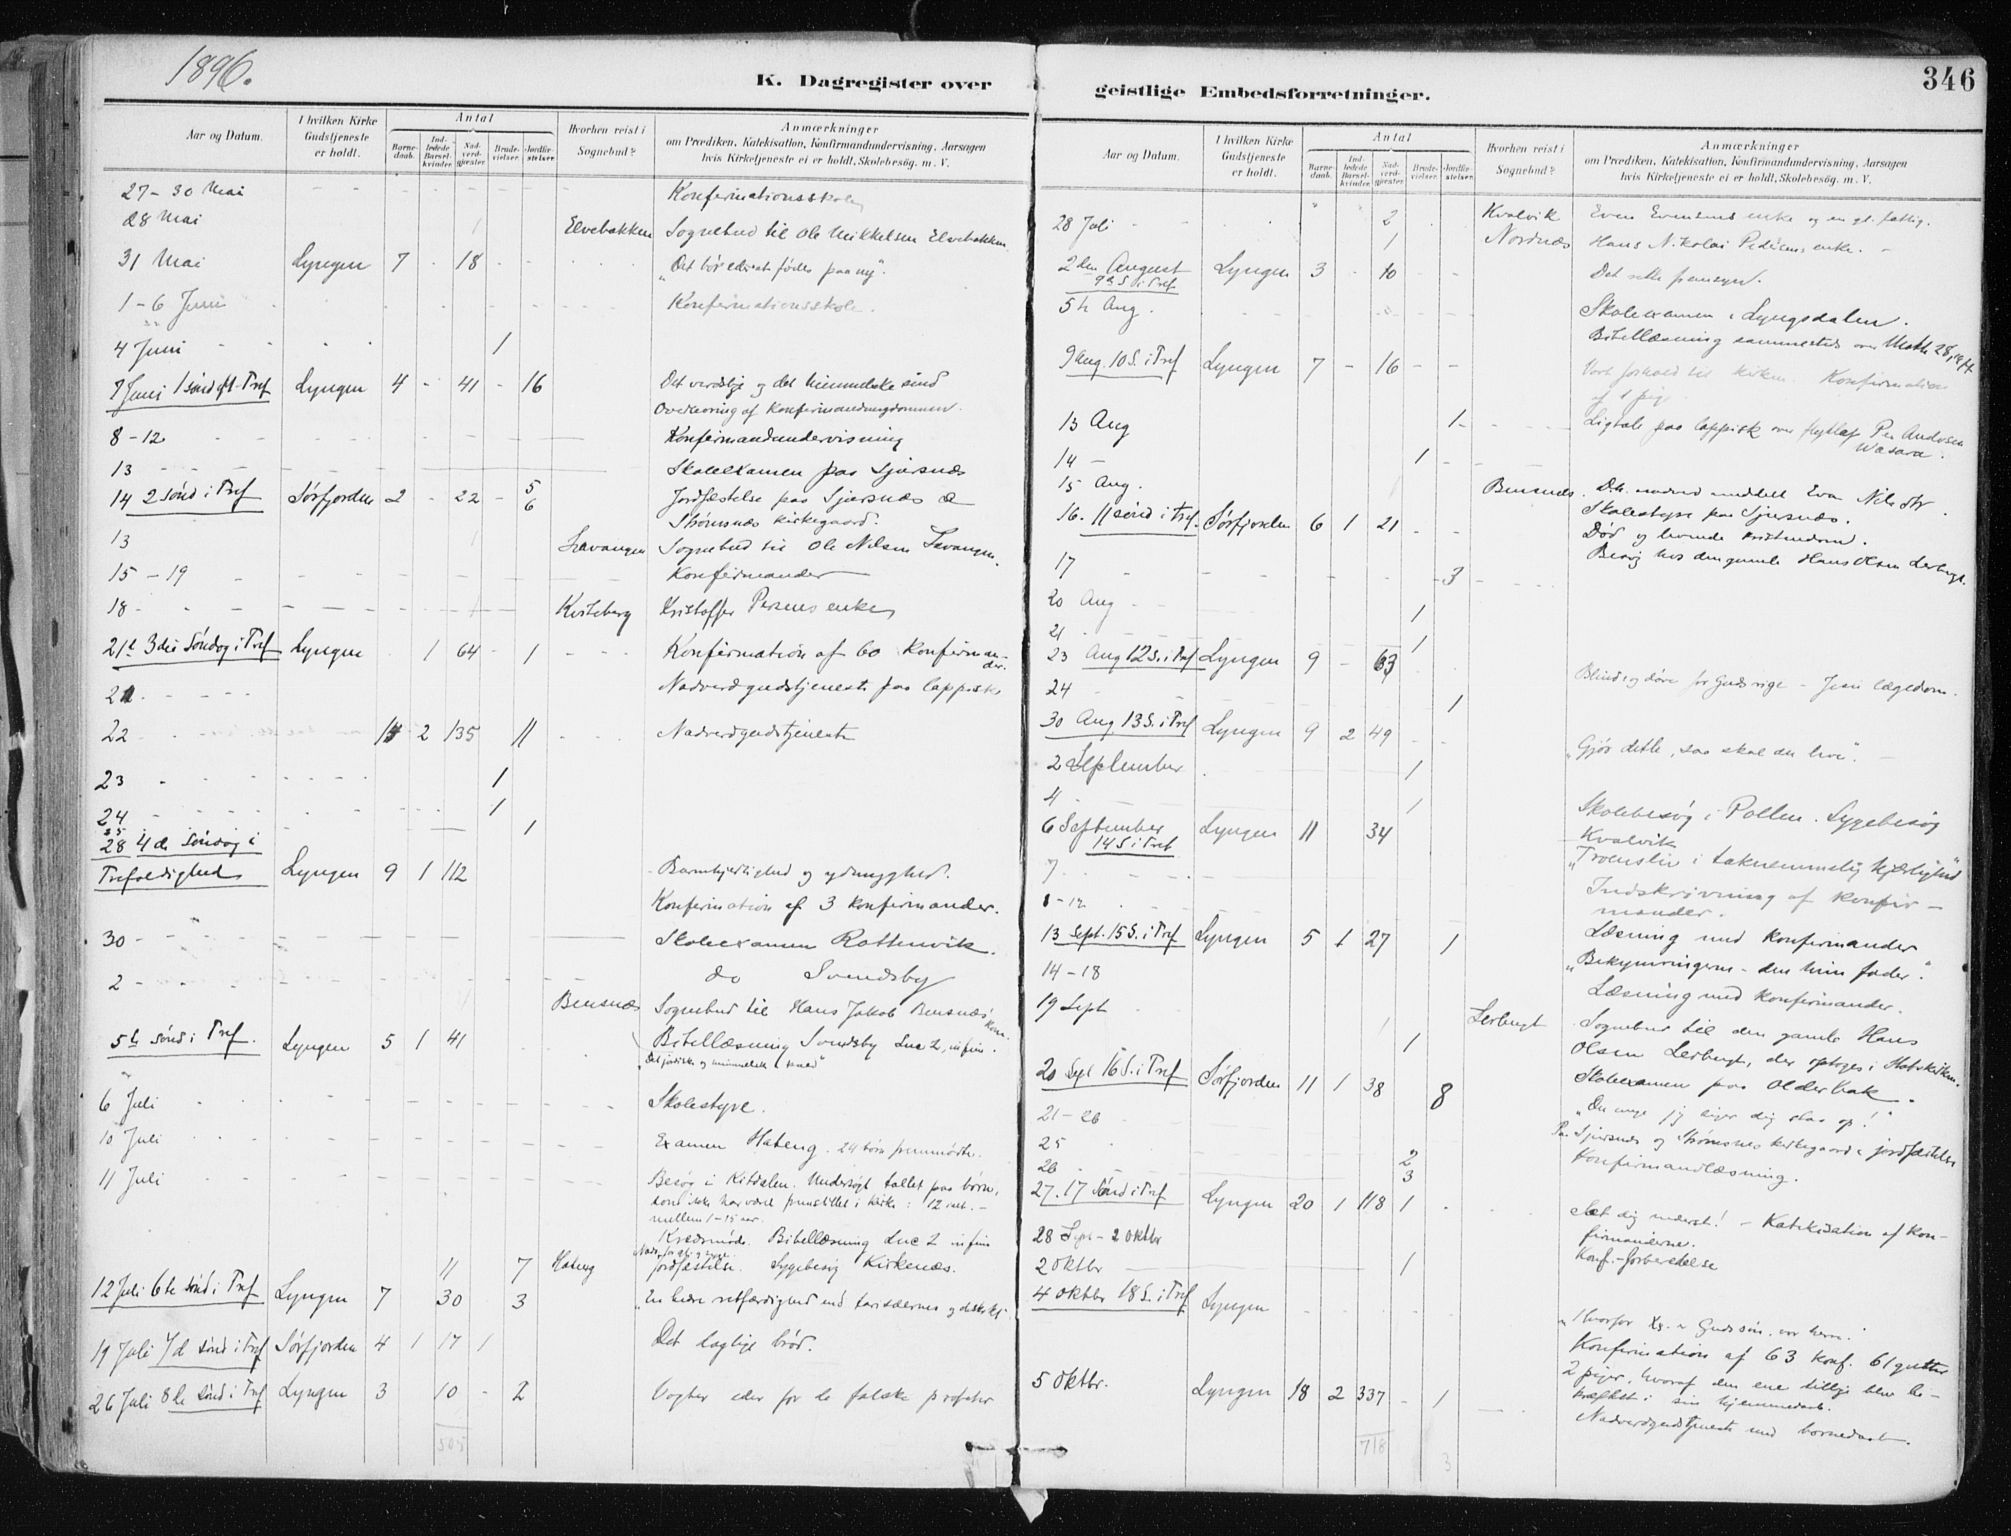 1896.
K. Dagregister over
Aar og Datum.
I hvilken Kirke Gudstjeneste er holdt.
Antal
Barnedaab.
Indledede Barselkvinder.
Nadverdgjæster.
Brudevielser.
Jordfæstelser.
Hvorhen reist i Sognebud?
Anmærkninger
om Prædiken, Katekisation, Konfirmandundervisning, Aarsagen
hvis Kirketjeneste ei er holdt, Skolebesøg. m. V.
27-30 Mai Konfirmationsskole
28 Mai 1 Elvebakken Sognebud til Ole Mikkelsen Elvebakken
31 Mai Lyngen 7 18 "Det bør eder at fødes paa ny".
1-6 Juni Konfirmationsskole.
4 Juni 1
7 Juni 1 sønd eft. Tref Lyngen 4 - 41 - 16 Det verdslige og det himmelske sind
Overhøring af Konfirmandungdommen.
8-12 Konfirmandundervisning
13 Skoleexamen paa Sjursnæs
14 2 sønd i Tref Sørfjorden 2 - 22 - 5 6 Jordfæstelse paa Sjursnæs &
Strømsnæs kirkegaard.
13 1 Lavangen Sognebud til Ole Nilsen Lavangen.
15-19 Konfirmander
18 1 Kviteberg Kristoffer Persens enke
21 3die Søndag i Tref Lyngen 1 64 - 1 Konfirmation af 60 Konfirmander.
21 Nadverdgudstjeneste paa lappisk
22 2 135 11 Nadverdgudstjeneste
23 1
24 1
25 1
28 4de Søndag i
Trefoldighed Lyngen 9 1 112 Barmhjertighed og ydmyghed.
Konfirmation af 3 konfirmander.
30 Skoleexamen Rottenvik.
2 do Svendsby
Bensnæs Sognebud til Hans Jakob Bensnæs' kone.
5te sønd i Tref. Lyngen 5 1 41 Bibellæsning Svendsby Luc 2, in fin.
6 Juli Skolestyre.
10 Juli Examen Hateng. 24 børn fremmødte.
11 Juli Besøg i Kitdalen. Undersøgt tallet paa børn,
som ikke har været fremstillet i kirke: 12
mellem 1-15 aar.
Kredsmøde. Bibellæsning Luc 2 in fin
11 7 Hateng Jordfæstelse. Sygebesøg Kirkenæs.
12 Juli 6te sønd i Tref Lyngen 7 30 3 "En bedre retfærdighed end farisæernes og de skr.
19 Juli 7de sønd i Tref Sørfjorden 4 1 17 1 Det daglige brød.
26 Juli 8de sønd i Tref Lyngen 3 10 - 2 Vogter eder for de falske profeter
505
geistlige Embedsforretninger.
346
Aar og Datum.
I hvilken Kirke Gudstjeneste er holdt.
Antal
Barnedaab.
Indledede Barselkvinder.
Nadverdgjæster.
Brudevielser.
Jordfæstelser.
Hvorhen reist i Sognebud?
Anmærkninger
om Prædiken, Katekisation, Konfirmandundervisning, Aarsagen
hvis Kirketjeneste ei er holdt, Skolebesøg. m. V.
28 Juli 2 Kvalvik Even Evensens enke og en gl. fattig.
1 Nordnæs Hans Nikolai Pedersens enke.
2den August Lyngen 3 - 10 Det rette
9de S. i Tref
5te Aug. Skoleexamen i Lyngsdalen.
Bibellæsning sammesteds over Matth 28,
9 Aug. 10 S. i Tref Lyngen 7 - 16 - - Vort forhold til kirken. Konfirmation
af 1 pige
13 Aug 1 Ligtale paa lappisk over flytlap Per Andersen
Wasara.
14 1
15 Aug. Bensnæs. meddelt Eva Nilsdtr.
Skolestyre paa Sjursnæs.
16. 11 sønd i Tref. Sørfjorden 6 1 21 Død og levende kristendom.
17 3 Besøg hos den gamle Hans Olsen Lerbugt.
20 Aug 1
21 1
23 Aug 12 S. i Tref Lyngen 9 - 63 Blinde og døve for Guds rige - Jesu lægedom.
24 1
30 Aug 13 S. i Tref Lyngen 9 2 49 "Gjør dette, saa skal du leve".
2 September 1
4 1 Skolebesøg i Pollen. Sygebesøg
Kvalvik
6 September Lyngen 11 34 "Troensliv i taknemmelig kjærlighed"
14 S i Tref
7 Indskrivning af konfir-
mander.
8-12 Læsning med konfirmander
13 Sept. 15 S. i Tref Lyngen 5 1 27 1 "Bekymringerne - den himm. fader".
14-18 Læsning med konfirmander.
19 Sept 1 Lerbugt Sognebud til den gamle Hans
Olsen Lerbugt, der optoges i Statskirken.
1 Skoleexamen paa Olderbak.
20 Sept 16 S. i Tref Sørfjorden 11 1 38 8 "Du unge jeg siger dig staa op!"
Paa Sjursnæs og Strømsnæs kirkegaarde jordfæstelse
21-26 Konfirmandlæsning.
25 2
26 3
27. 17 sønd i Tref Lyngen 20 1 118 1 Sæt dig nederst! - Katekisation af kon-
firmanderne.
28 Sept - 2 Oktbr Konf.-forberedelse
2 Oktbr 1
4 Oktbr 18 S. i Tref Lyngen "Hvorfor er Guds søn, vor herre."
Konfirmation af 63 konf. 61 gutter
2 piger, hvoraf den ene tillige blev be-
kræftet i sin hjemmedaab.
5 Oktbr. Lyngen 18 2 337 - 1 Nadverdgudstjeneste med barnedaab.
718 3